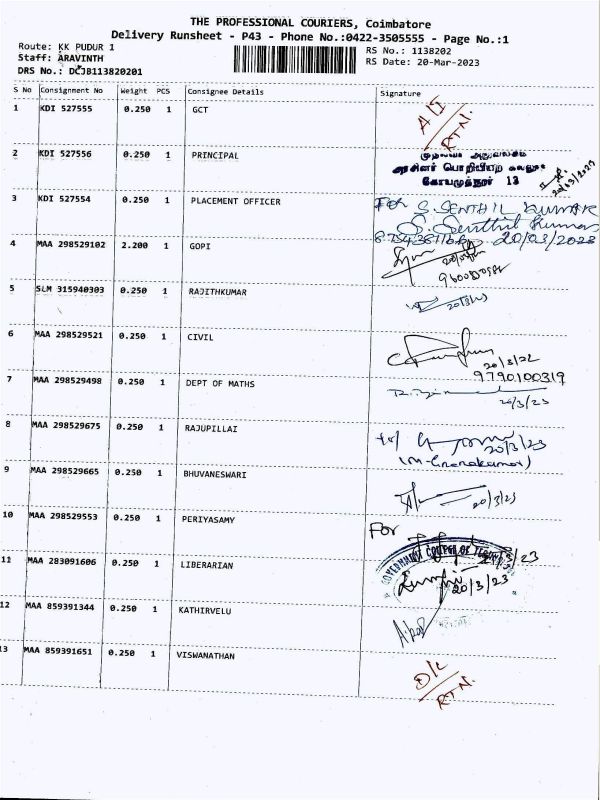 THE PROFESSIONAL COURIERS, Coimbatore
Delivery Runsheet - P43 - Phone No.:0422-3505555 - Page No.:1
Route: KK PUDUR 1 RS No.: 1138202
Staff: ARAVINTH RS Date: 20-Mar-2023
DRS No.: DCJB113820201
S No Consignment No Weight PCS Consignee Details Signature
1 KDI 527555 0.250 1 GCT RTN.
2 KDI 527556 0.250 1 PRINCIPAL
கோயமுத்தூர் 13
20/03/2023
3 KDI 527554 0.250 1 PLACEMENT OFFICER FOR S. SENTHIL KUMAR
S. Senthil Kumar
20/03/2023
4 MAA 298529102 2.200 1 GOPI
5 SLM 315940303 0.250 1 RAJITHKUMAR 20/3/23
6 MAA 298529521 0.250 1 CIVIL
20/3/22
9790100319
7 MAA 298529498 0.250 1 DEPT OF MATHS
20/3/23
8 MAA 298529675 0.250 1 RAJUPILLAI 20/3/23
9 MAA 298529665 0.250 1 BHUVANESWARI 20/3/23
10 MAA 298529553 0.250 1 PERIYASAMY For
GOVERNMENT COLLEGE OF
11 MAA 283091606 0.250 1 LIBERARIAN 20/3/23
12 MAA 859391344 0.250 1 KATHIRVELU
13 MAA 859391651 0.250 1 VISWANATHAN D/L
RTN.